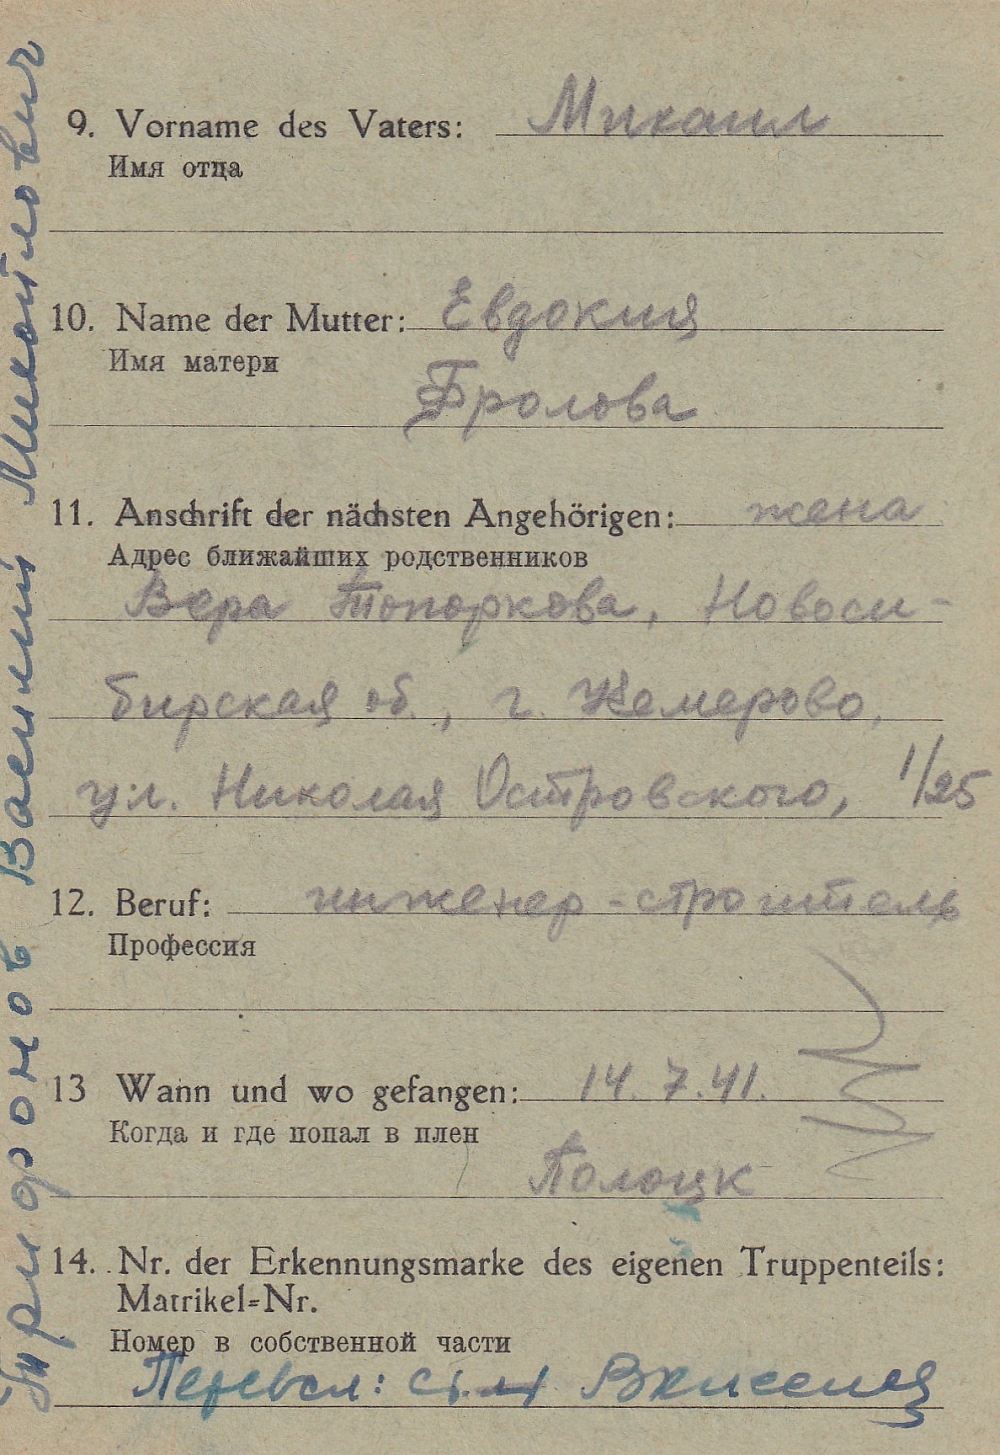 9. Vorname des Vaters: Михаил
Имя отца
10. Name der Mutter: Евдокия
Имя матери
Фролова
11. Anschrift der nächsten Angehörigen: жена
Адрес ближайших родственников
Вера Топоркова, Новоси-
бирская об., г. Кемерово,
ул. Николая Островского, 1/25
12. Beruf: инженер-строитель
Профессия
13 Wann und wo gefangen: 14. 7. 41.
Когда и где попал в плен
Полоцк
14. Nr. der Erkennungsmarke des eigenen Truppenteils:
Matrikel=Nr.
Номер в собственной части
Перевел:
Трифонов Василий Михайлович